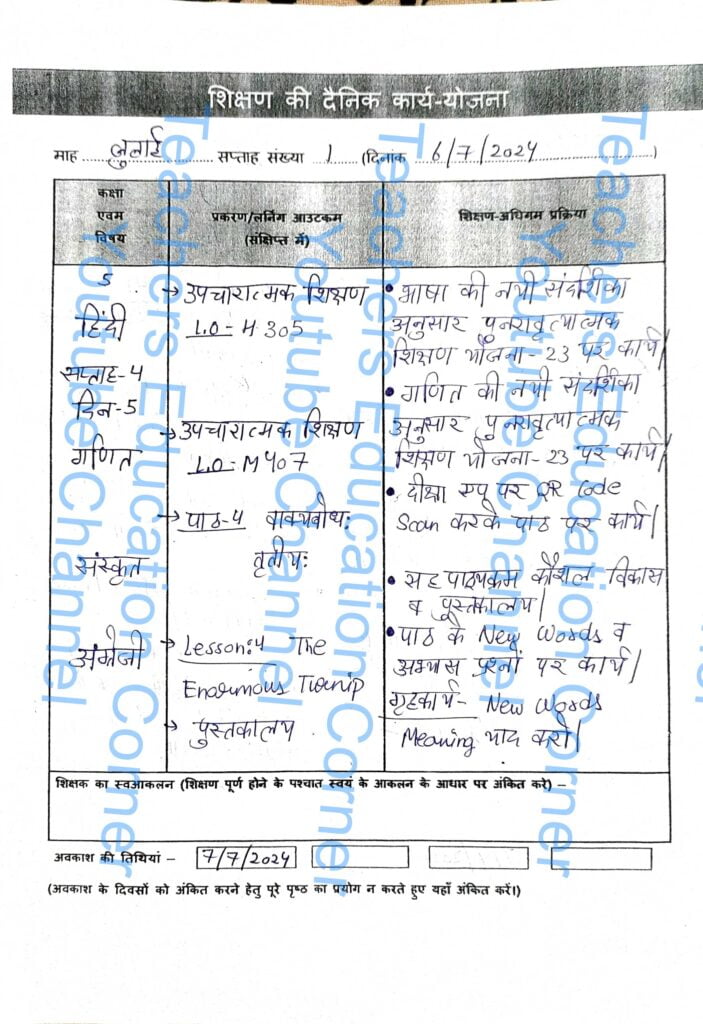 शिक्षण की दैनिक कार्य-योजना
माह जुलाई सप्ताह संख्या 1 (दिनांक 6/7/2024)
कक्षा एवम विषय
प्रकरण/लर्निंग आउटकम (संक्षिप्त में)
शिक्षण-अधिगम प्रक्रिया
5
हिंदी
सप्ताह-4
दिन-5
गणित
संस्कृत
अंग्रेजी
→ उपचारात्मक शिक्षण
LO-H 305
→ उपचारात्मक शिक्षण
LO-M407
→ पाठ-4 वाक्यबोध:
तृतीय:
→ Lesson:4 The
Enormous Turnip
→ पुस्तकालय
• भाषा की नयी संदर्शिका
अनुसार पुनरावृत्यात्मक
शिक्षण योजना-23 पर कार्य|
• गणित की नयी संदर्शिका
अनुसार पुनरावृत्यात्मक
शिक्षण योजना-23 पर कार्य|
• दीक्षा एप पर QR Code
Scan करके पाठ पर कार्य|
• सह पाठ्यक्रम कौशल विकास
व पुस्तकालय|
• पाठ के New Words व
अभ्यास प्रश्नों पर कार्य|
गृहकार्य- New Words
Meaning याद करो|
शिक्षक का स्वआकलन (शिक्षण पूर्ण होने के पश्चात स्वयं के आकलन के आधार पर अंकित करे) –
अवकाश की तिथियां – 7/7/2024
(अवकाश के दिवसों को अंकित करने हेतु पूरे पृष्ठ का प्रयोग न करते हुए यहाँ अंकित करें।)
Teachers Education Corner
Youtube Channel
Teachers Education Corner
Youtube Channel
Teachers Education Corner
Youtube Channel